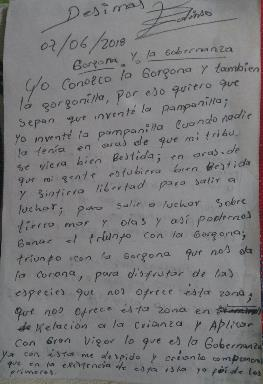 Desimas
07/06/2018
Gorgona y la Gobernanza
Yo Conozco la Gorgona y tambien
la gorgonilla, Por eso quiero que
sepan que inventé la Pampanilla;
Yo inventé la pampanilla cuando nadie
la tenía en aras de que mi tribu
se viera bien Bestida; en aras-de
que mi gente estubiera bien Bestida
y sintiera libertad para salir a
luchar; para salir a luchar sobre
tierra mar y olas y así podernos
Ganar el triunfo con la Gorgona;
triunfo con la Gorgona que nos da
la corona, para disfrutar de las
especies que nos ofrece ésta zona;
que nos ofrece ésta zona en
Relación a la Crianza y Aplicar
con Gran Vigor lo que es la Gobernanza
ya con ésta me despido y
que en la existencia de esta isla yo fui de los
primeros.